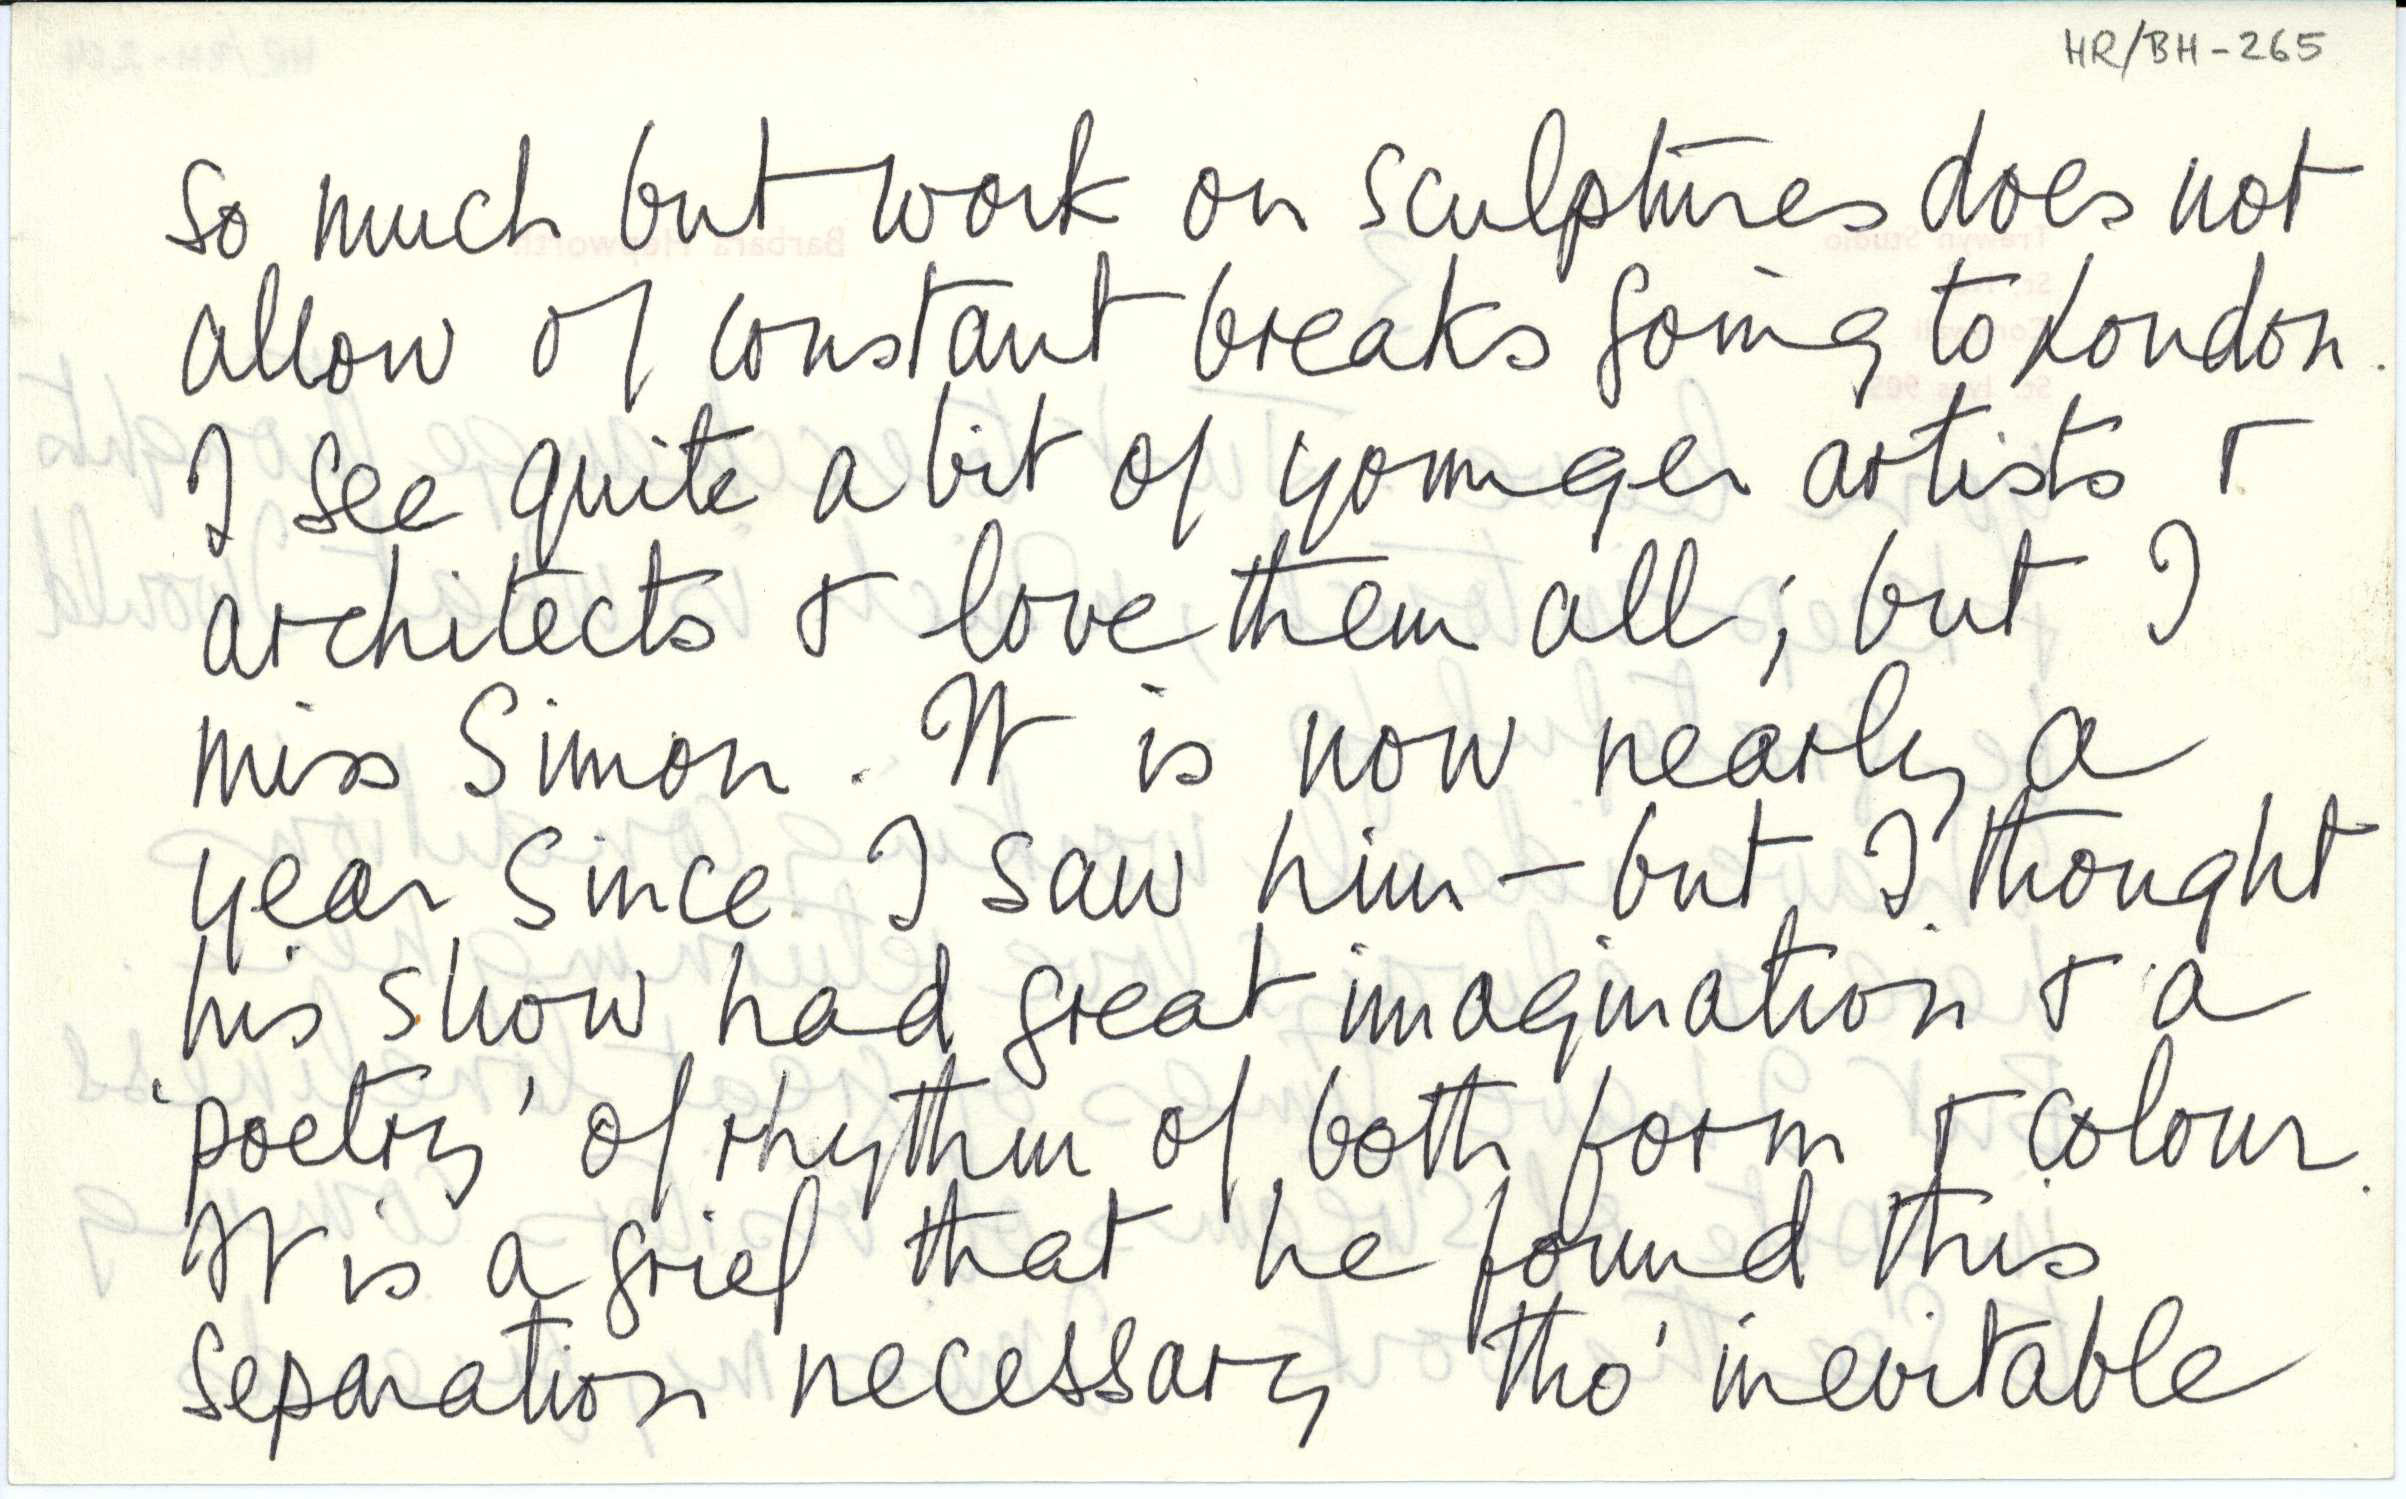 HR/BH-265
So much but work on sculptures does not
allow of constant breaks going to London.
I see quite a bit of younger artists &
architects & love them all; but I
miss Simon. It is now nearly a
year since I saw him – but I thought
his show had great imagination & a
'poetry' of rhythm of both form & colour.
It is a grief that he found this
separation necessary tho' inevitable